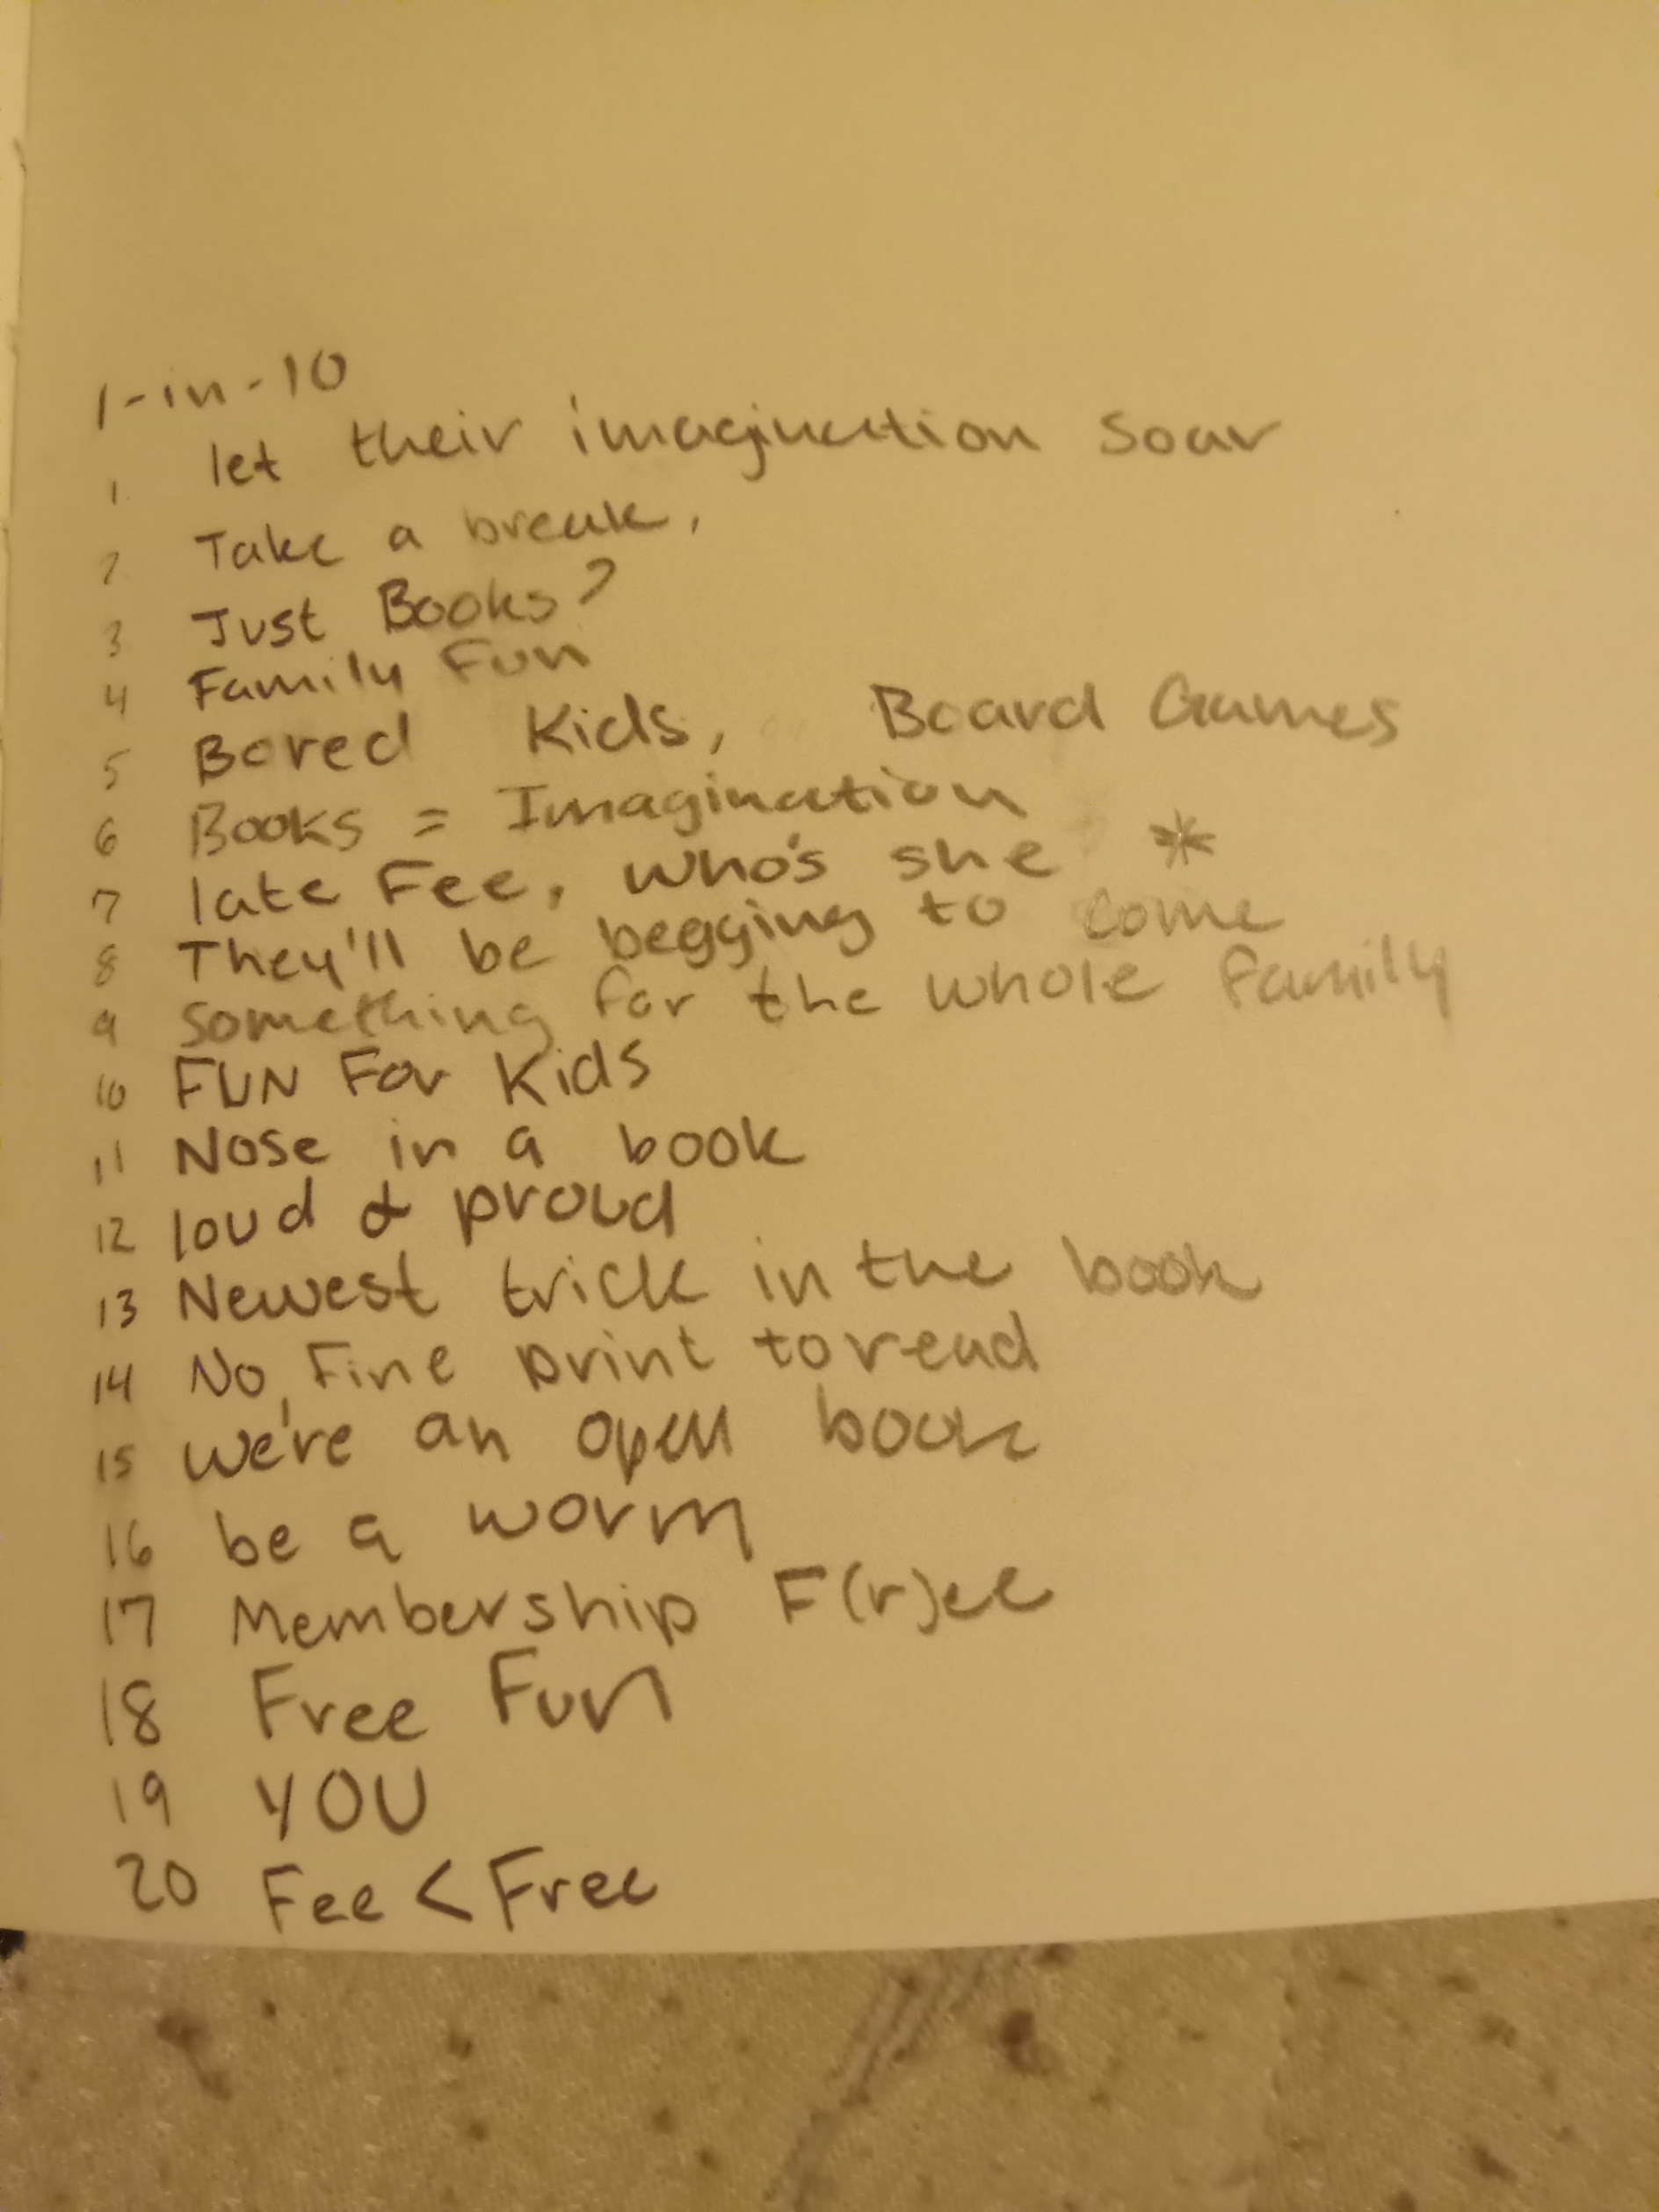 1-in-10
1. let their imagination soar
2 Take a break,
3 Just Books?
4 Family Fun
5 Bored Kids, Board Games
6 Books = Imagination
7 late Fee, who's she *
8 They'll be begging to come
9 something for the whole family
10 FUN For Kids
11 Nose in a book
12 loud & proud
13 Newest trick in the book
14 No, Fine print to read
15 we're an open book
16 be a worm
17 Membership F(r)ee
18 Free Fun
19 YOU
20 Fee < Free